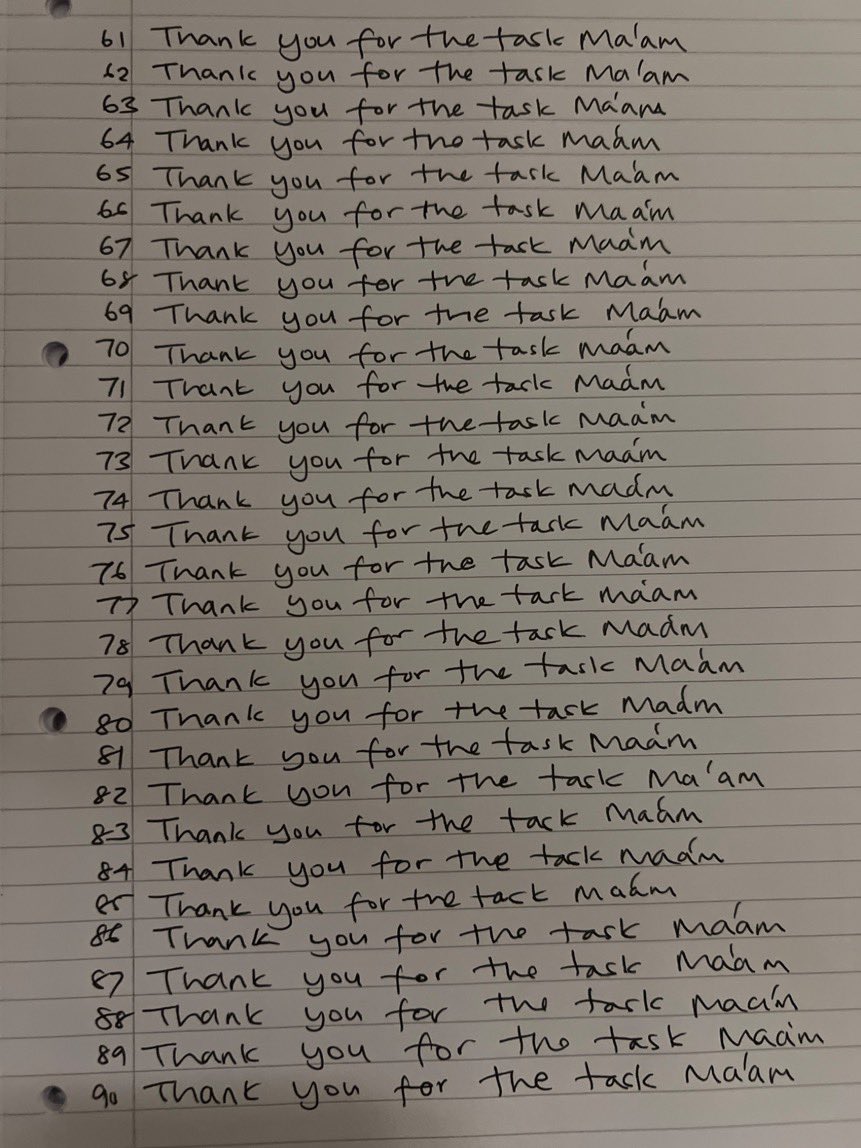 61 Thank you for the task Ma'am
62 Thank you for the task Ma'am
63 Thank you for the task Ma'am
64 Thank you for the task Ma'am
65 Thank you for the task Ma'am
66 Thank you for the task Ma'am
67 Thank you for the task Ma'am
68 Thank you for the task Ma'am
69 Thank you for the task Ma'am
70 Thank you for the task Ma'am
71 Thank you for the task Ma'am
72 Thank you for the task Ma'am
73 Thank you for the task Ma'am
74 Thank you for the task Ma'am
75 Thank you for the task Ma'am
76 Thank you for the task Ma'am
77 Thank you for the task Ma'am
78 Thank you for the task Ma'am
79 Thank you for the task Ma'am
80 Thank you for the task Ma'am
81 Thank you for the task Ma'am
82 Thank you for the task Ma'am
83 Thank you for the task Ma'am
84 Thank you for the task Ma'am
85 Thank you for the task Ma'am
86 Thank you for the task Ma'am
87 Thank you for the task Ma'am
88 Thank you for the task Ma'am
89 Thank you for the task Ma'am
90 Thank you for the task Ma'am